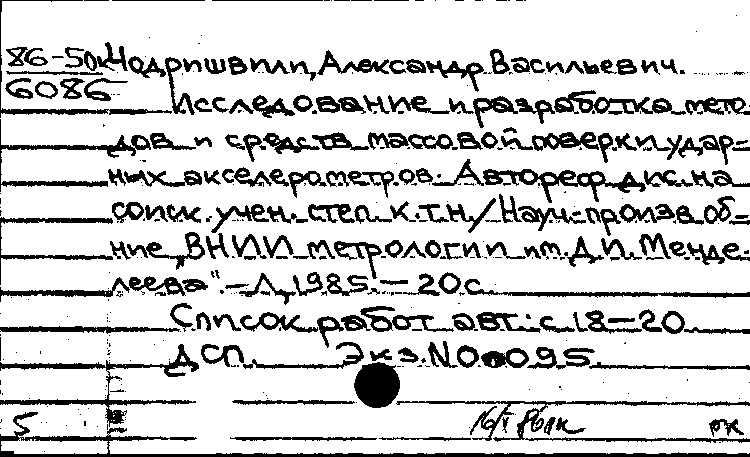 86-50к Чодришвили, Александр Васильевич.
6086 Исследование и разработка мето-
дов и средств массовой поверки удар-
ных акселерометров. Автореф. дис. на
соиск. учен. степ. к.т.н./Науч.-произв. об-
ние „ВНИИ метрологии им. Д.И. Менде-
леева". – Л, 1985. – 20 с.
Список работ авт.: с. 18–20
ДСП. Экз. N 00095.
5 16/V 86